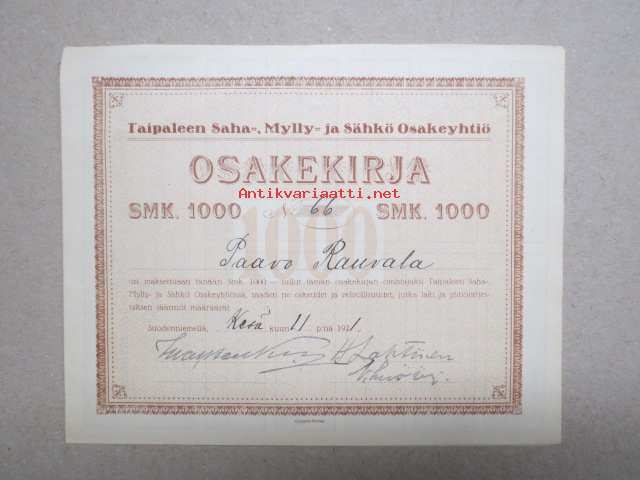 Taipaleen Saha-, Mylly- ja Sähkö Osakeyhtiö
OSAKEKIRJA
Antikvariaatti.net
SMK. 1000 No 66 SMK. 1000
1000
Paavo Rauvala
on maksettuaan tänään Smk. 1000:— tullut tämän osakekirjan omistajaksi Taipaleen Saha-,
Mylly- ja Sähkö Osakeyhtiössä, saaden ne oikeudet ja velvollisuudet, jotka laki ja yhtiöjärjes-
tyksen säännöt määräävät.
Suodenniemellä, Kesä kuun 11 p:nä 1921.
H Lahtinen